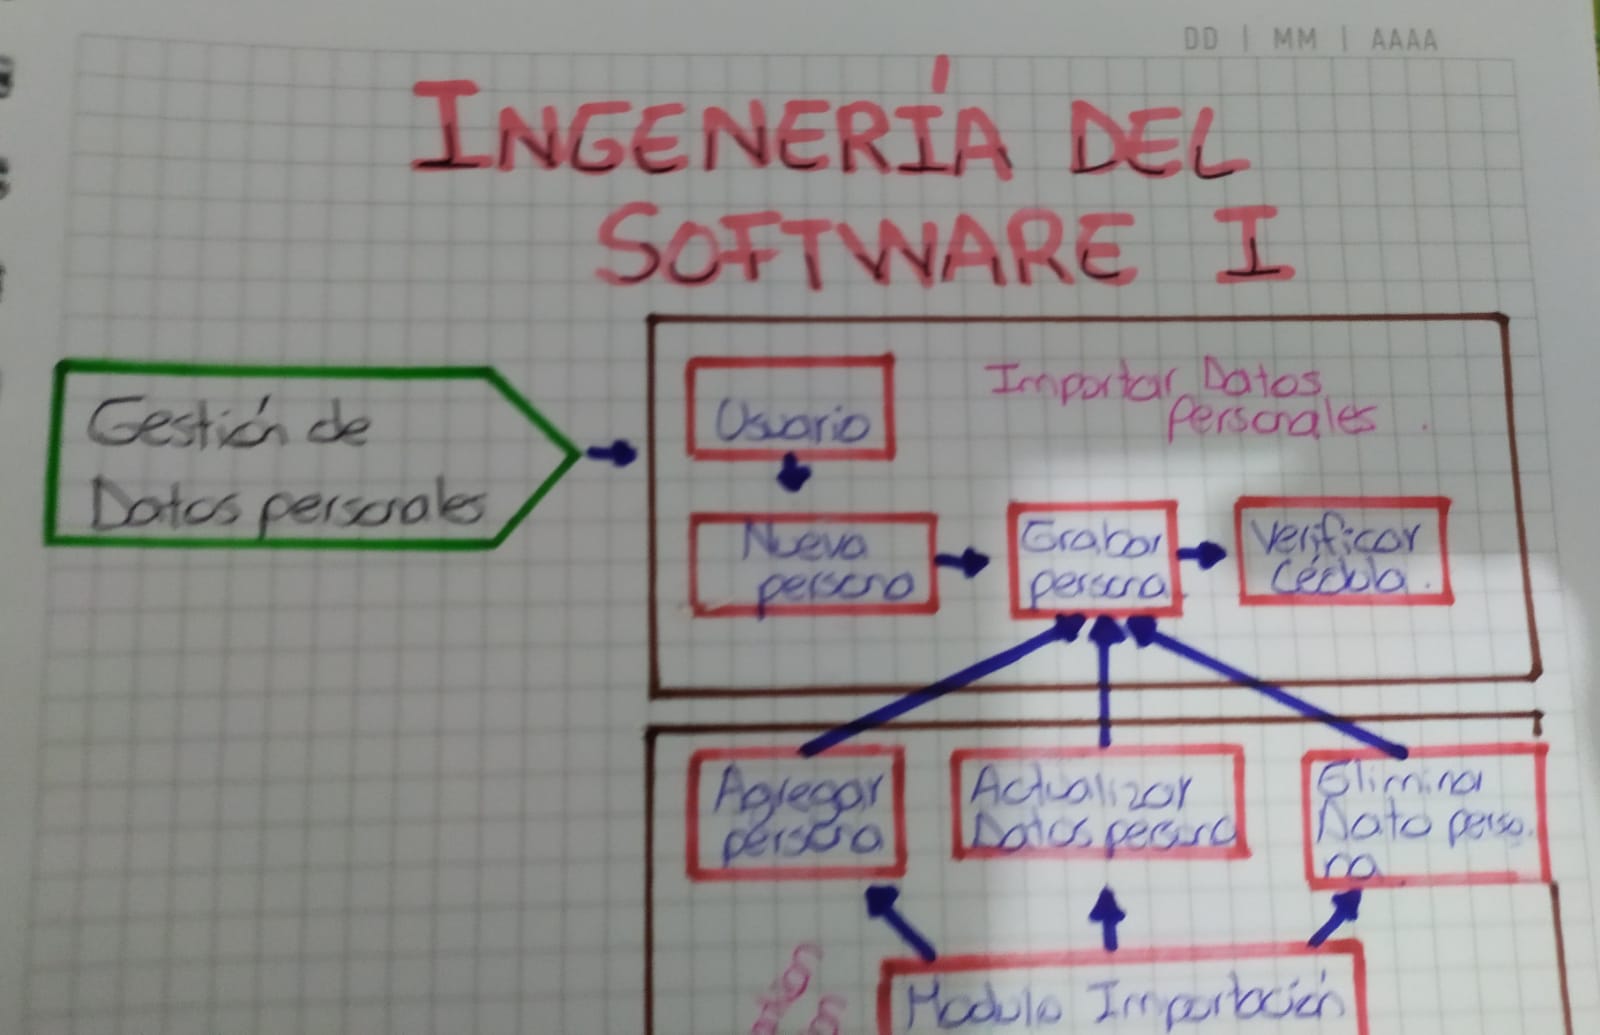 DD | MM | AAAA
INGENERÍA DEL
SOFTWARE I
Gestión de
Datos personales
Usuario
Importar Datos
Personales.
Nueva
persona
Grabar
persona.
Verificar
Cédula.
Agregar
persona
Actualizar
Datos persona
Eliminar
Dato perso.
na.
Modulo Importación